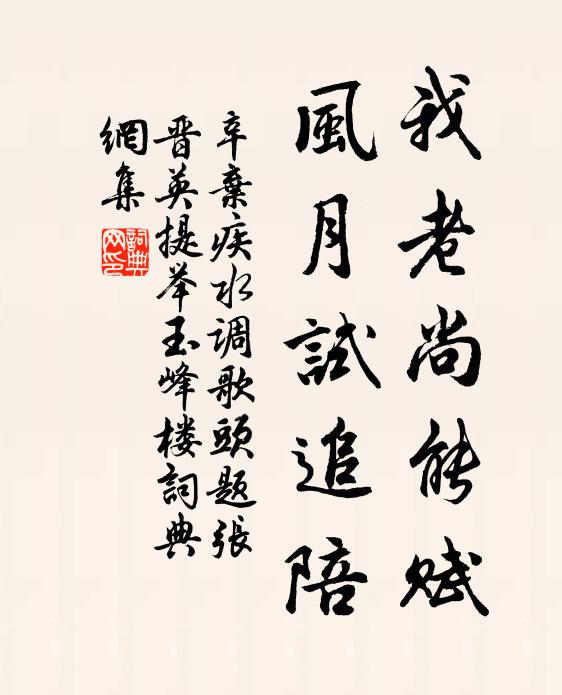 我老尚能赋
風月試追陪
辛棄疾水调歌頭题張
晋英提举玉峰楼詞典
網集
詞典
网印